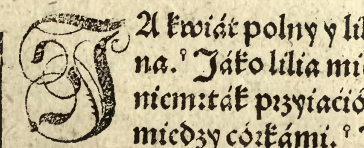 JA kwiát polny y lil
na.° Jáko lilia mie
niem: ták przyiació
miedzy córkámi.°